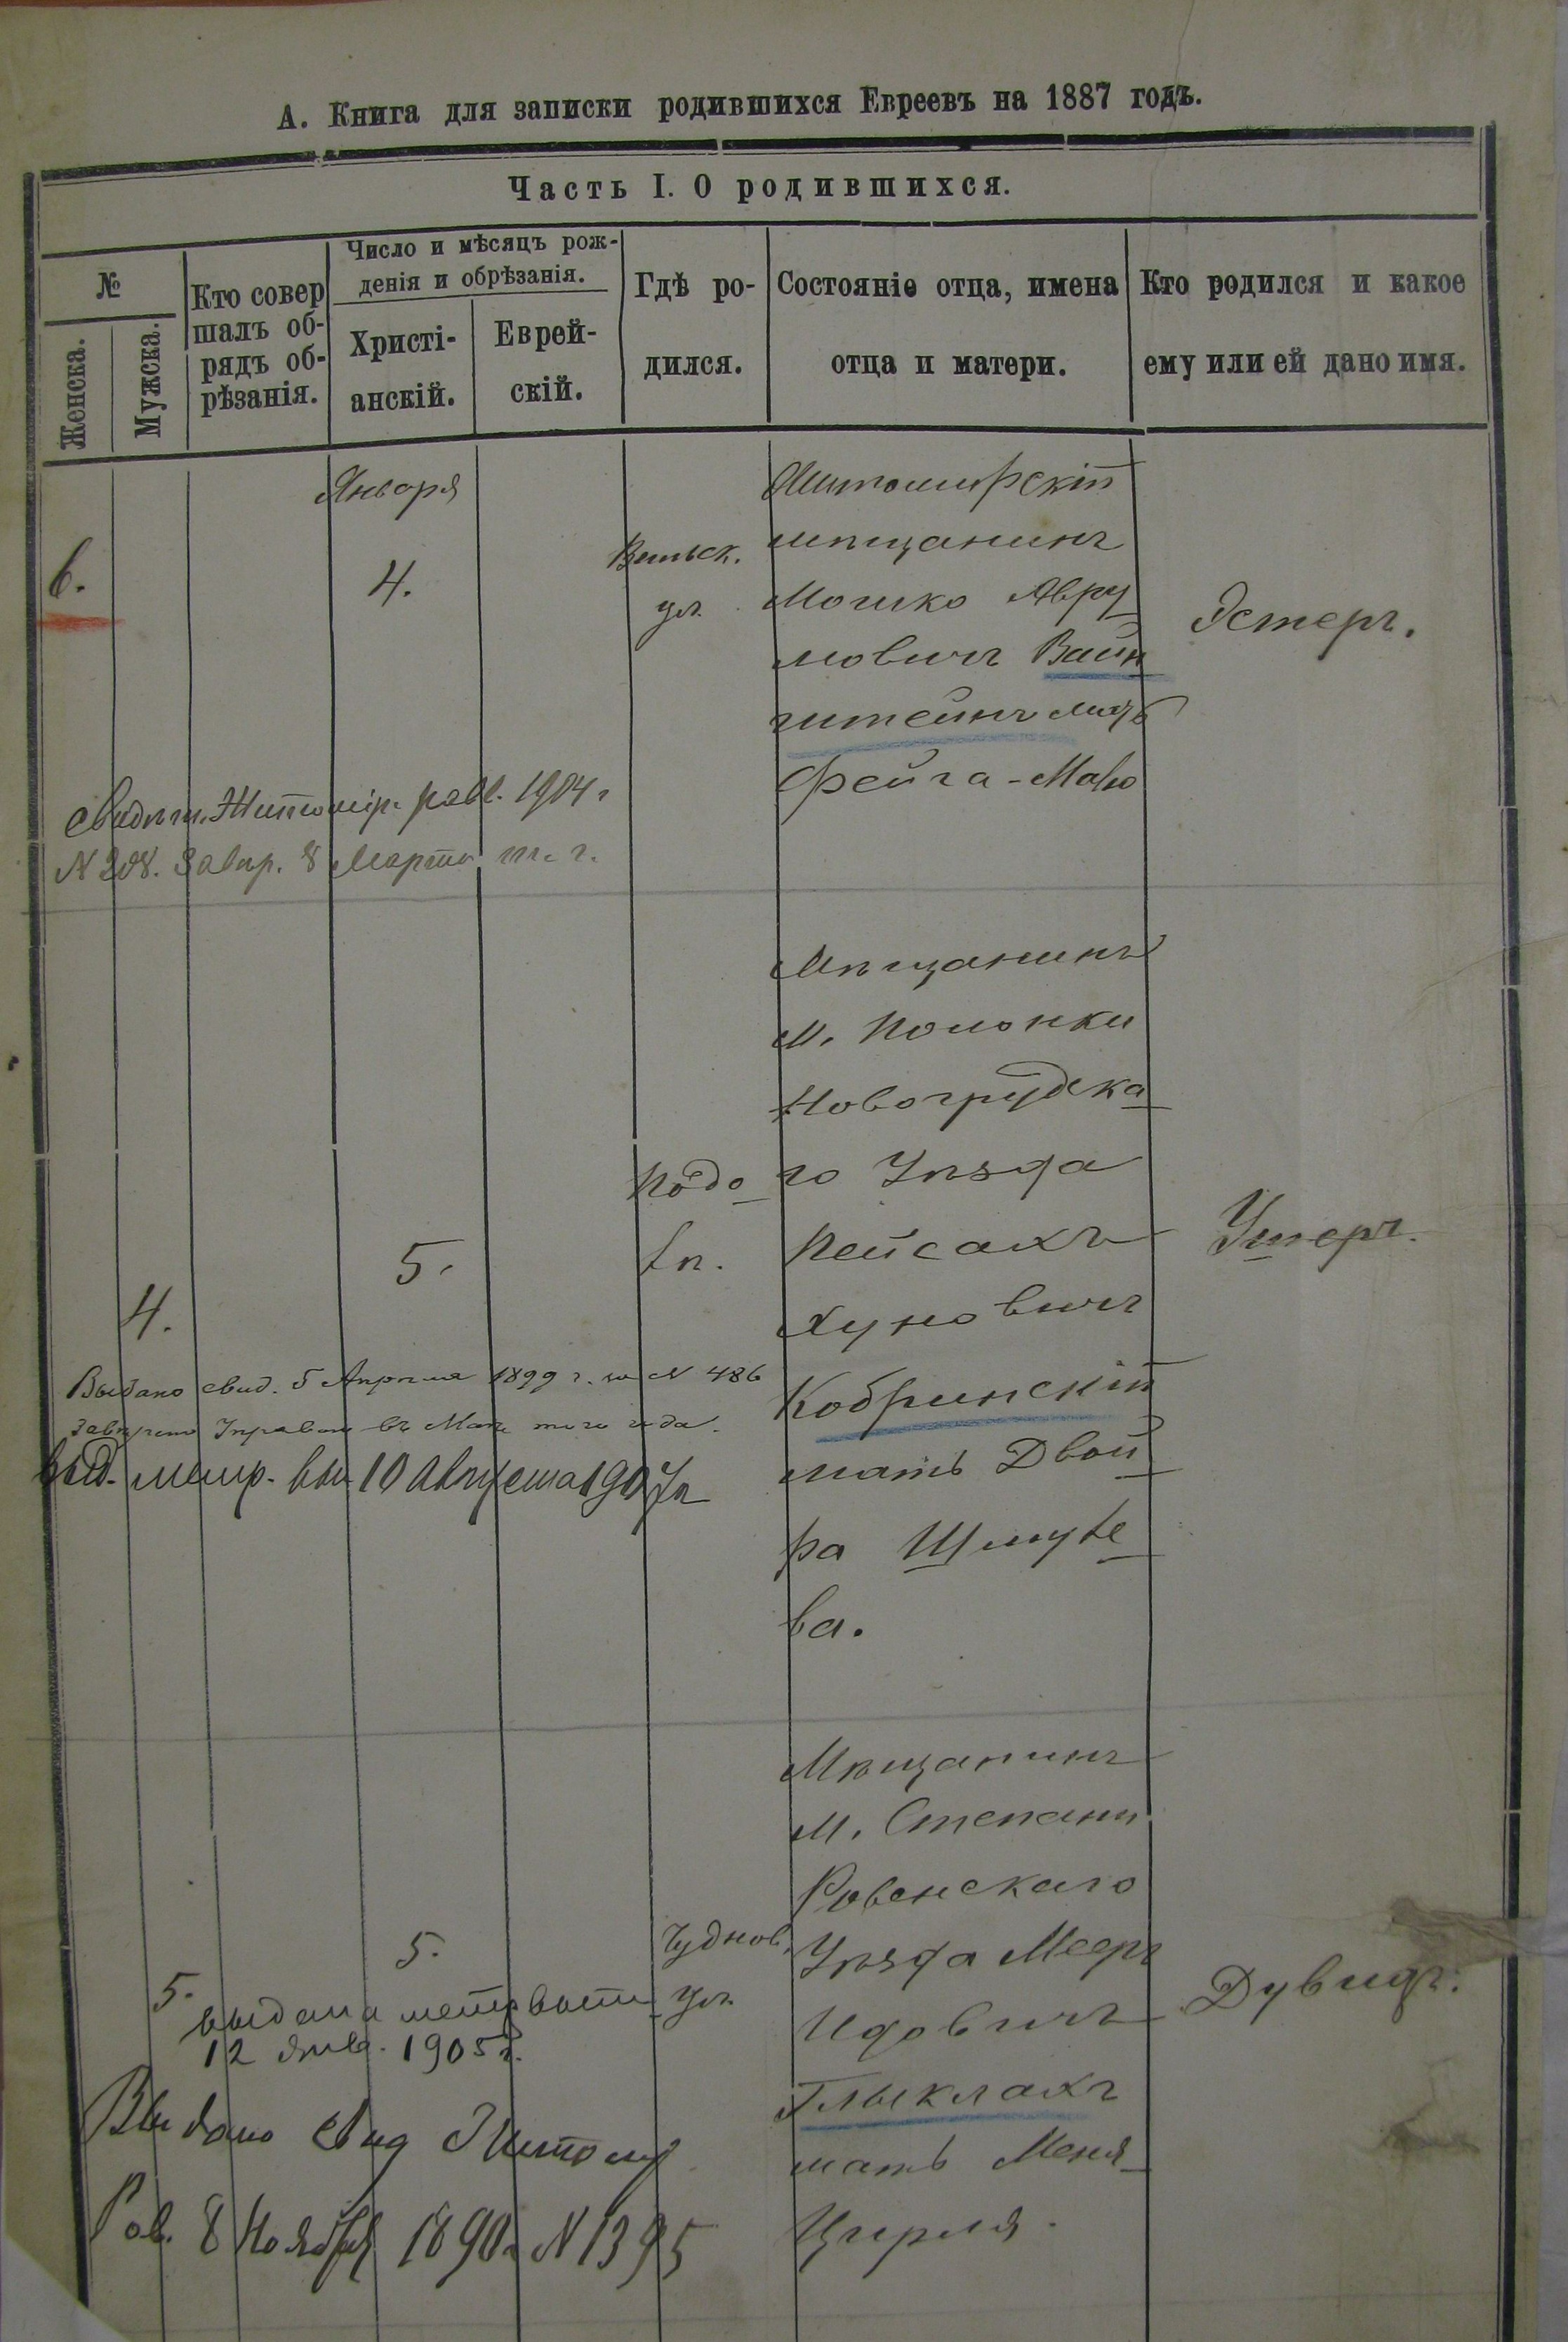 А. Книга для записки родившихся Евреевъ на 1887 годъ.
Часть I. О родившихся.
№
Женска.
Мужска.
Кто совер
шалъ об-
рядъ об-
рѣзанія.
Число и мѣсяцъ рож-
денія и обрѣзанія.
Христі-
анскій.
Еврей-
скій.
Гдѣ ро-
дился.
Состояніе отца, имена
отца и матери.
Кто родился и какое
ему или ей дано имя.
Января
6.
4.
Вильск.
ул.
Житомирскій
мѣщанинъ
Мошко Авру
мовичъ Вайн
штейнъ мать
Фейга-
Эстеръ.
Свидѣт. Житомір. равв. 1904 г
N 208. Завѣр. 8 Марта т. г.
4.
5.
Подо
лѣ.
Мѣщанинъ
м. Полонки
Новогрудска
го Уѣзда
Пейсахъ
Хуновичъ
Кобринскій
мать Двой
ра Шмуле
ва.
Ушеръ.
Выдано свид. 5 Апрѣля 1899 г. за N 486
Завѣрено Управою въ того года.
выд. метр. вып 10 августа 1907г
5.
5.
Чуднов.
ул.
Мѣщанинъ
м. Степани
Ровенскаго
Уѣзда Мееръ
Идовичъ
Глыклахъ
мать Меня
Цирля.
Дувидъ.
выдана метр выпи
12 янв. 1905г.
Выдано свид Житомір
Рав. 8 Ноября 1890г N 1395